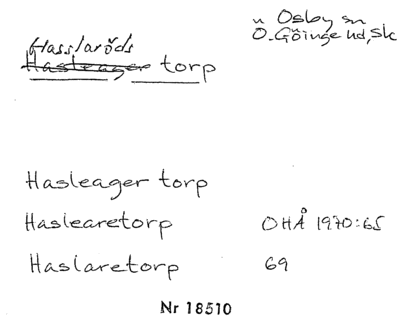 n Osby sn
Ö. Göinge hd, Sk
Hasslaröds
Hasleager torp
Hasleager torp
Haslearetorp OHÅ 1970:65
Haslaretorp 69
Nr 18510